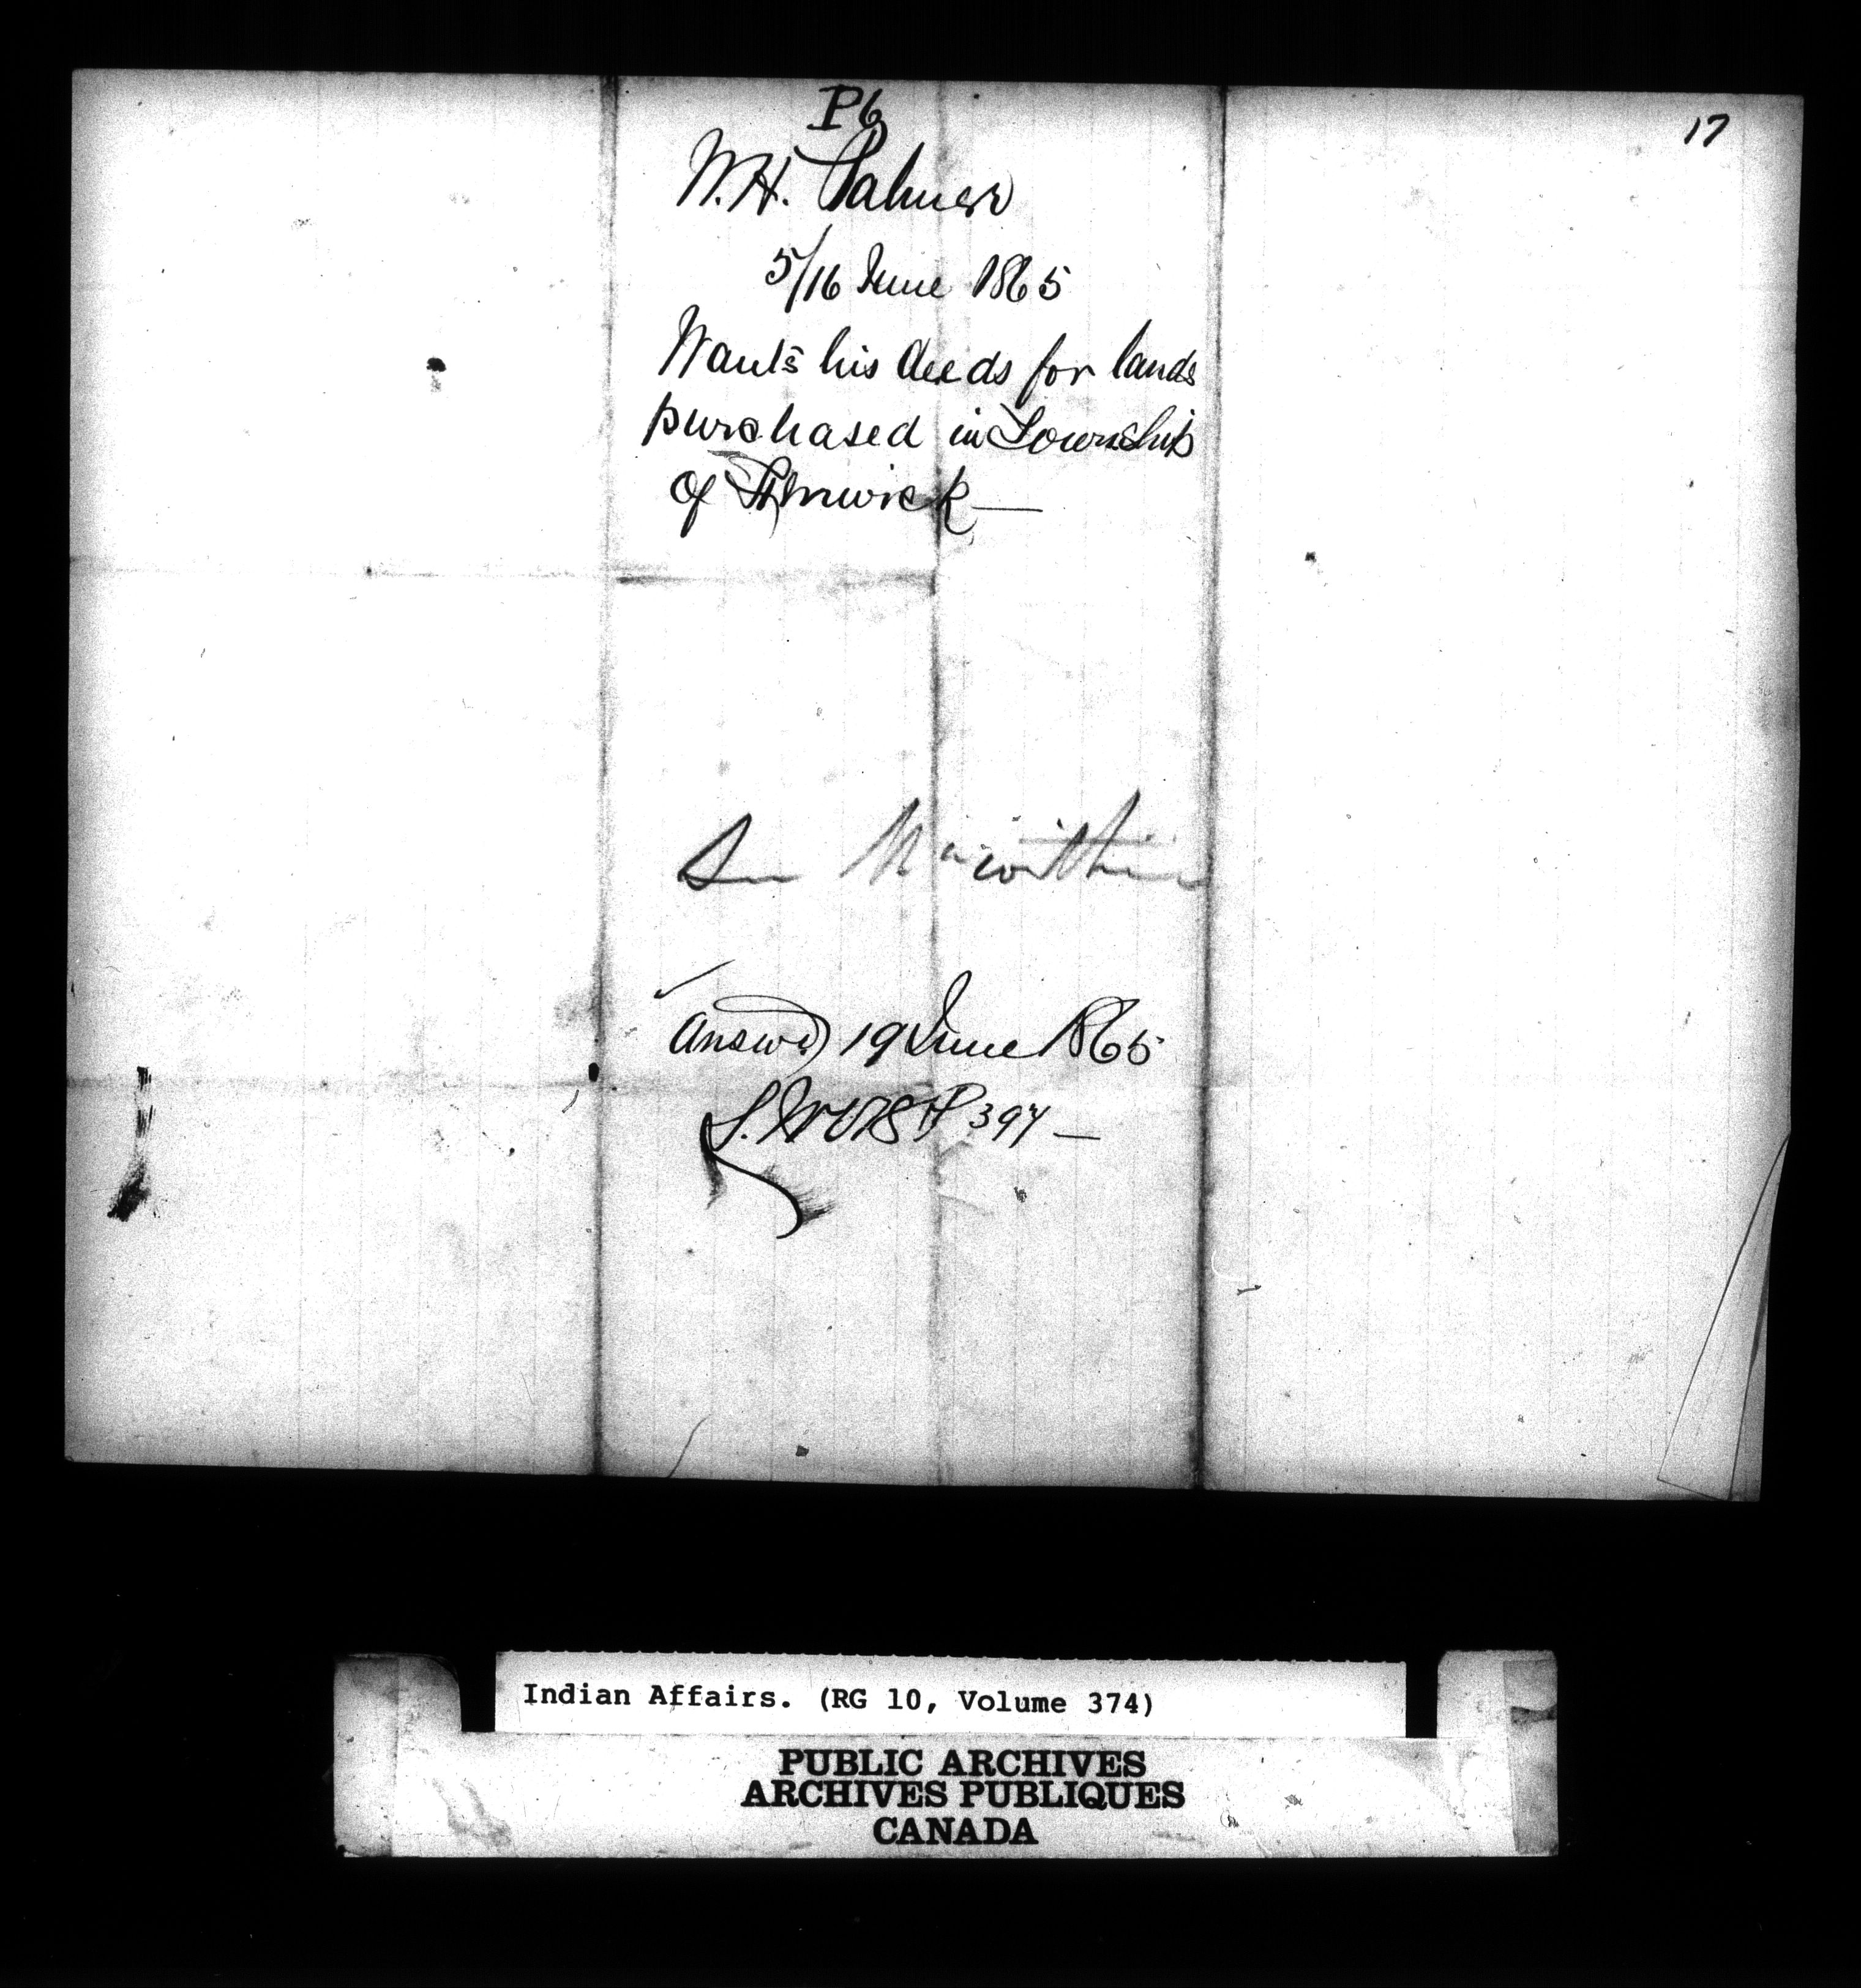 P6
17
W. H. Palmer
5/16 June 1865
Wants his deeds for lands
purchased in Township
of Fenwick —
See within
Answd 19 June 1865
P 397 —
Indian Affairs. (RG 10, Volume 374)
PUBLIC ARCHIVES
ARCHIVES PUBLIQUES
CANADA